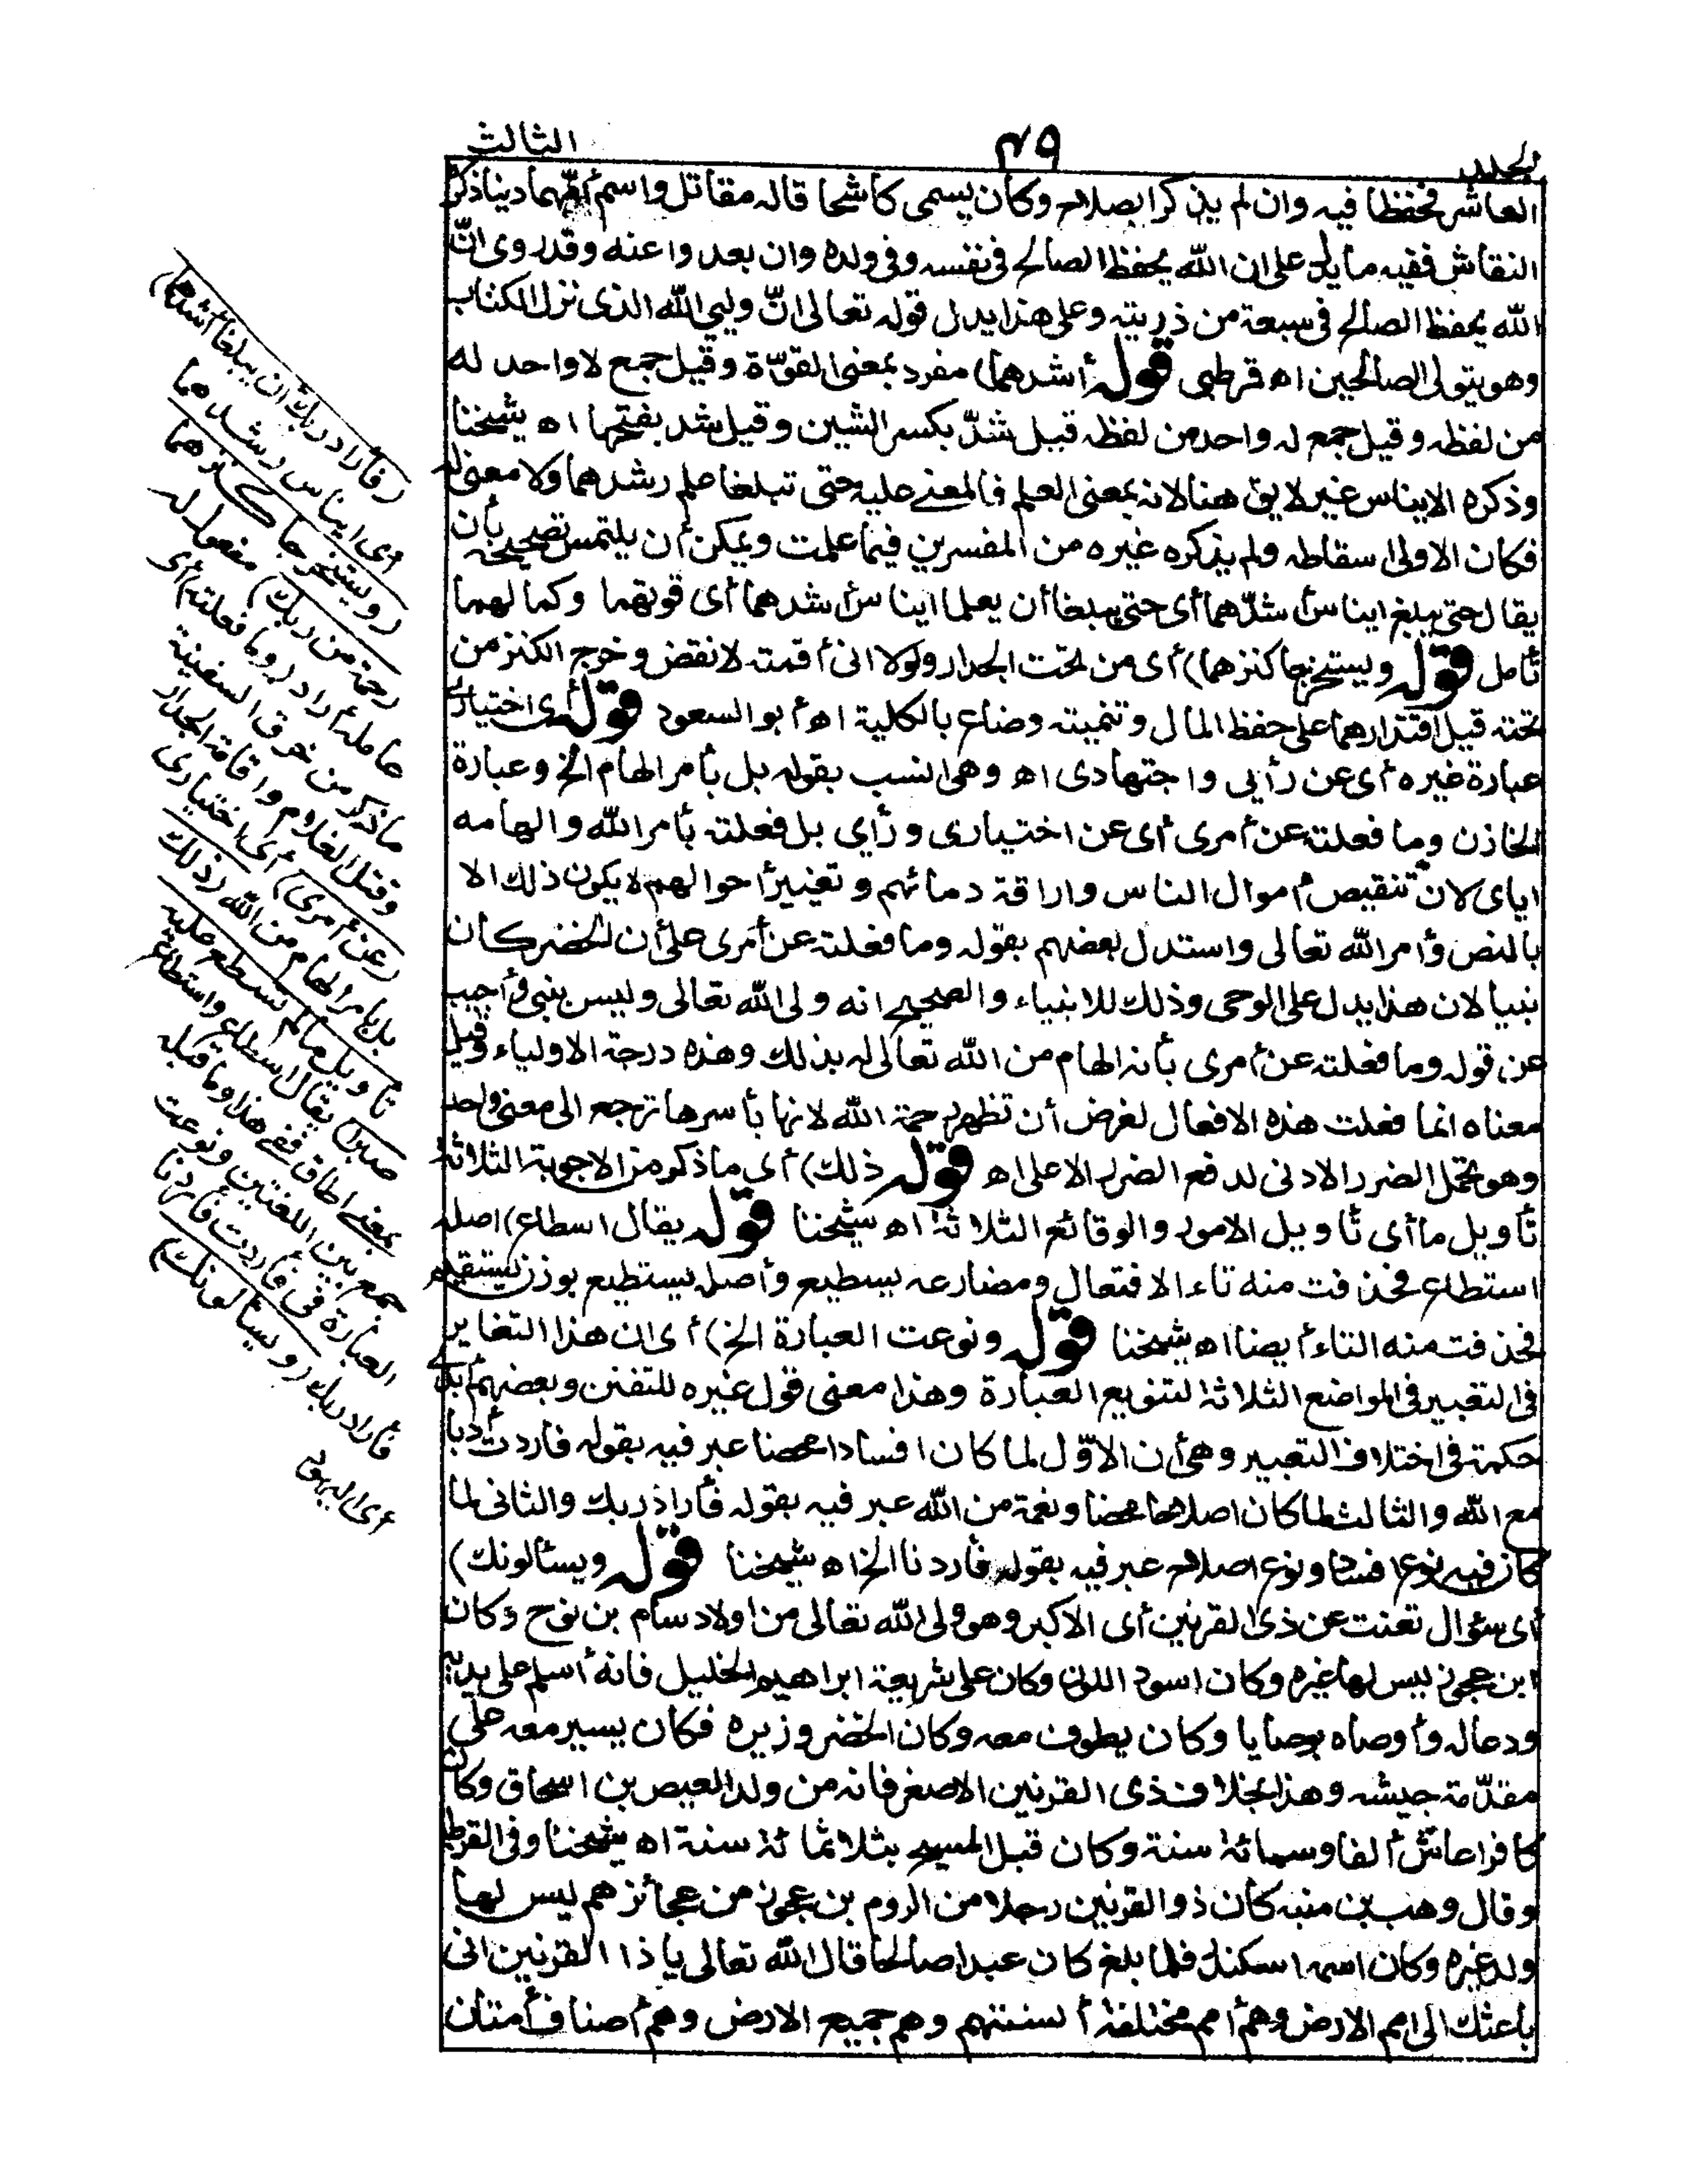 الجلد
٤٩
الثالث
العاشر فحفظا فيه وان لم يذكرا بصلاح وكان يسمى كاشحا قاله مقاتل واسم أمهما دينا ذكره
النقاش ففيه ما يدل على ان الله يحفظ الصالح فى نفسه وفى ولده وان بعدوا عنه وقد روى انّ
الله يحفظ الصالح فى سبعة من ذريته وعلى هذا يدل قوله تعالى انّ وليي الله الذى نزل الكتاب
وهو يتولى الصالحين اه قرطبى قوله أشدهما) مفرد بمعنى القوّة وقيل جمع لا واحد له
من لفظه وقيل جمع له واحد من لفظه قيل شدّ بكسر الشين وقيل شد بفتحها اه شيخنا
وذكره الايناس غير لايق هنا لانه بمعنى العلم فالمعنى عليه حتى تبلغا علم رشدهما ولا معنى له
فكان الاولى اسقاطه ولم يذكره غيره من المفسرين فيما علمت ويمكن أن يلتمس تصحيحه بأن
يقال حتى يبلغ ايناس أشدّهما أى حتى يبلغا أن يعلما ايناس أشدهما أى قوتهما وكمالهما
تأمل قوله ويستخرجا كنزهما) أى من تحت الجدار ولولا انى أقمته لانقض وخرج الكنز من
تحته قبل اقتدارهما على حفظ المال وتنميته وضاع بالكلية اه أبو السعود قوله أى اختيارى
عبارة غيره أى عن رأيي واجتهادى اه وهى انسب بقوله بل بأمر الهام الخ وعبارة
الخازن وما فعلته عن أمرى أى عن اختيارى ورأى بل فعلته بأمر الله والهامه
اياى لان تنقيص أموال الناس واراقة دمائهم وتغيير أحوالهم لا يكون ذلك الا
بالنص وأمر الله تعالى واستدل بعضهم بقوله وما فعلته عن أمرى على أن الخضر كان
نبيا لان هذا يدل على الوحى وذلك للانبياء والصحيح انه ولى الله تعالى وليس بنبى وأجيب
عن قوله وما فعلته عن أمرى بأنه الهام من الله تعالى له بذلك وهذه درجة الاولياء وقيل
معناه انما فعلت هذه الافعال لغرض أن تظهر رحمة الله لانها بأسرها ترجع الى معنى واحد
وهو تحمل الضرر الادنى لدفع الضرر الاعلى اه قوله ذلك) أى ما ذكر من الاجوبة الثلاثة
تأويل ما أى تأويل الامور والوقائع الثلاثة اه شيخنا قوله يقال اسطاع) اصله
استطاع فحذفت منه تاء الافتعال ومضارعه يسطيع وأصله يستطيع بوزن يستقيم
فحذفت منه التاء أيضا اه شيخنا قوله ونوعت العبارة الخ) أى ان هذا التغاير
فى التعبير فى المواضع الثلاثة لتنويع العبارة وهذا معنى قول غيره للتفنن وبعضهم أبدى
حكمة فى اختلاف التعبير وهى أن الاوّل لما كان افسادا محضا عبر فيه بقوله فأردت أدبا
مع الله والثالث لما كان اصلاحا محضا ونعمة من الله عبر فيه بقوله فأراد ربك والثانى لما
كان فيه نوع افساد ونوع اصلاح عبر فيه بقوله فأردنا الخ اه شيخنا قوله ويسئالونك)
أى سؤال تعنت عن ذى القرنين أى الاكبر وهو ولى الله تعالى من اولاد سام بن نوح وكان
ابن عجوز ليس لها غيره وكان اسود اللون وكان على شريعة ابراهيم الخليل فانه أسلم على يديه
ودعاله وأوصاه بوصايا وكان يطوف معه وكان الخضر وزيره فكان يسير معه على
مقدّمة جيشه وهذا بخلاف ذى القرنين الاصغر فانه من ولد العيص بن اسحاق وكان
كافرا عاش ألفا وسمائة سنة وكان قبل المسيح بثلاثمائة سنة اه شيخنا وفى القرطبى
وقال وهب بن منبه كان ذو القرنين رجلا من الروم بن عجوز من عجائزهم ليس لها
ولد غيره وكان اسمه اسكندر فلما بلغ كان عبدا صالحا قال الله تعالى يا ذا القرنين انى
باعثك الى امم الارض وهم أمم مختلفة ألسنتهم وهم جميع الارض وهم أصناف أمتان
(فأراد ربك أن يبلغا أشدهما)
أى ايناس رشدهما
(ويستخرجا كنزهما
رحمة من ربك) مفعول له
عامله أراد (وما فعلته) أى
ما ذكر من خرق السفينة
وقتل الغلام واقامة الجدار
(عن أمرى) أى اختيارى
بل بأمر الهام من الله (ذلك
تأويل ما لم تسطع عليه
صبرا) يقال اسطاع واستطاع
بمعنى اطاق ففى هذا وما قبله
جمع بين اللغتين ونوعت
العبارة فى فأردت فأردنا
فأراد ربك (ويسئالونك)
أى اليهود